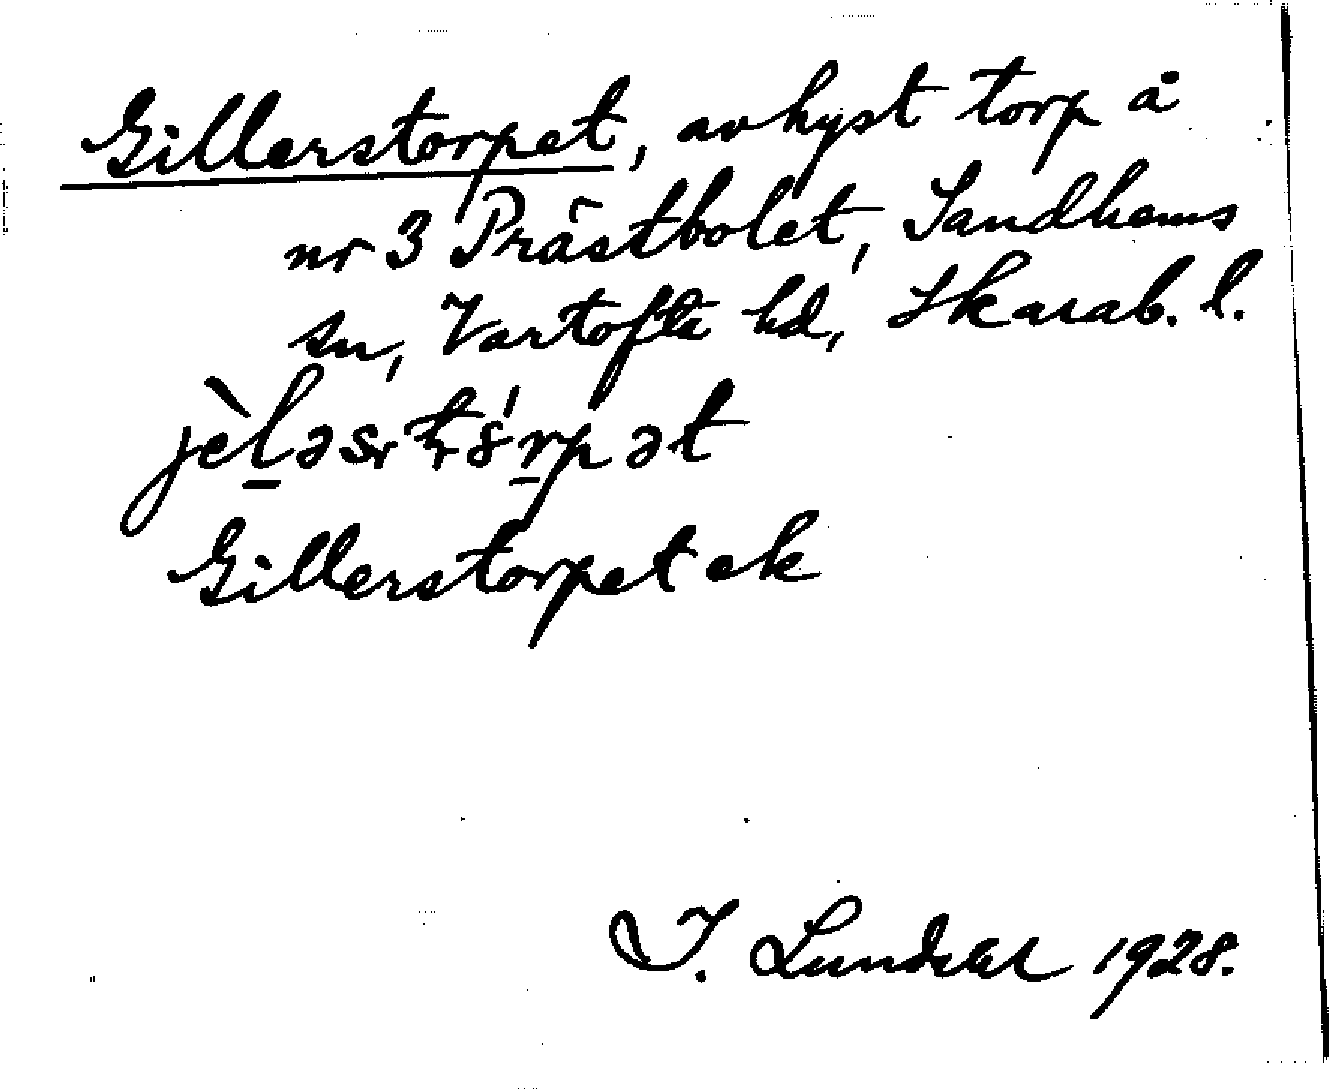 Gillerstorpet, avhyst torp å
nr 3 Prästbolet, Sandhems
sn, Vartofta hd, Skarab. l.
jèləstȯrpət
Gillerstorpet ek
I. Lundahl 1928.